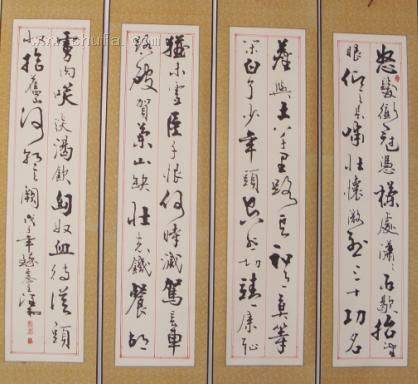 怒髮衝冠憑欄處瀟瀟雨歇抬望
眼仰天長嘯壯懷激烈三十功名
塵與土八千里路雲和月莫等
閒白了少年頭空悲切靖康恥
猶未雪臣子恨何時滅駕長車
踏破賀蘭山缺壯志飢餐胡
虜肉笑談渴飲匈奴血待從頭
收拾舊山河朝天闕 戊子年